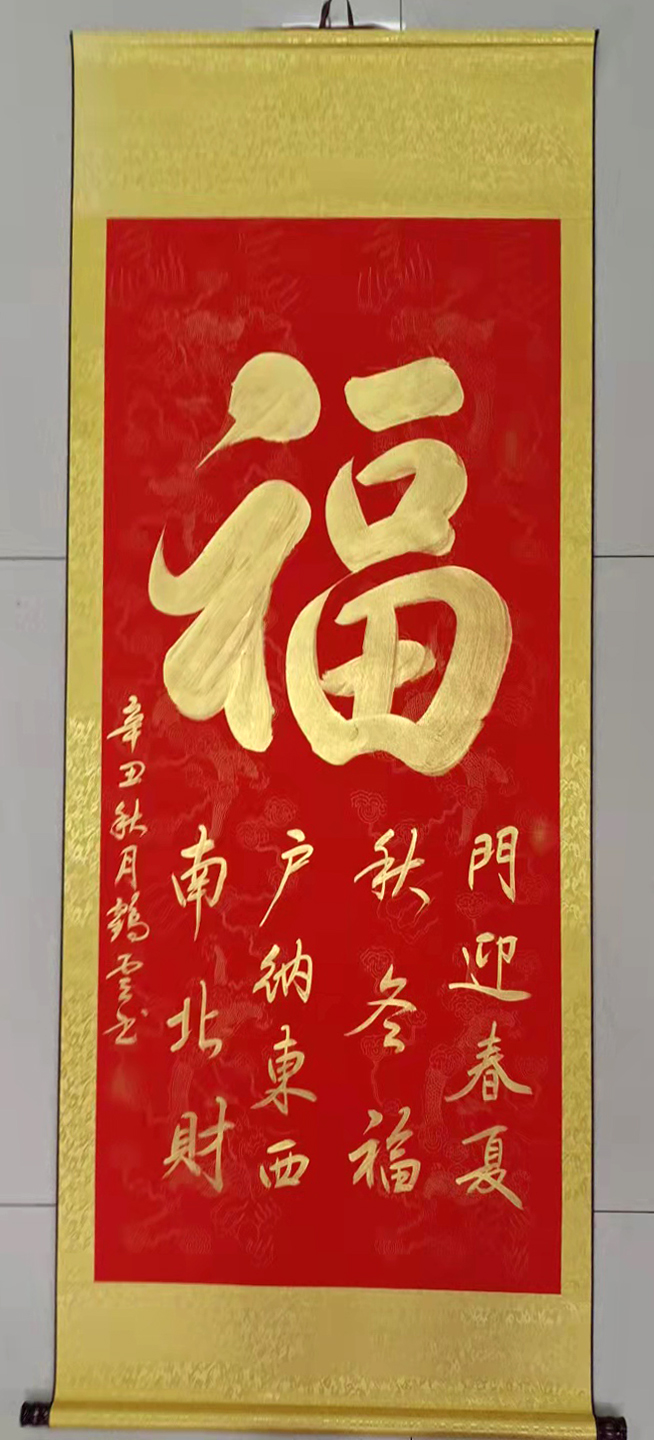 福
門迎春夏
秋冬福
户納東西
南北財
辛丑秋月鶴雲书